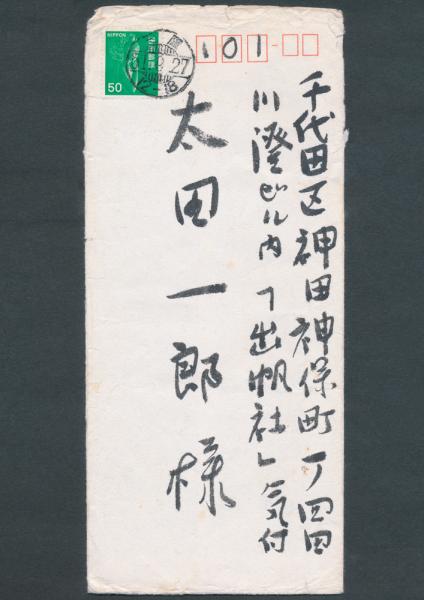 NIPPON
50
27
12-18
101
千代田区神田神保町一ノ四四
川澄ビル内「出帆社」気付
太田一郎様